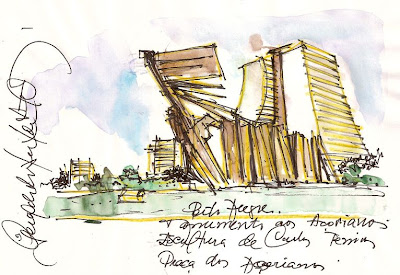 Porto Alegre..
Monumento aos Açorianos
Escultura de Carlos Tenius
Praça dos Açorianos.